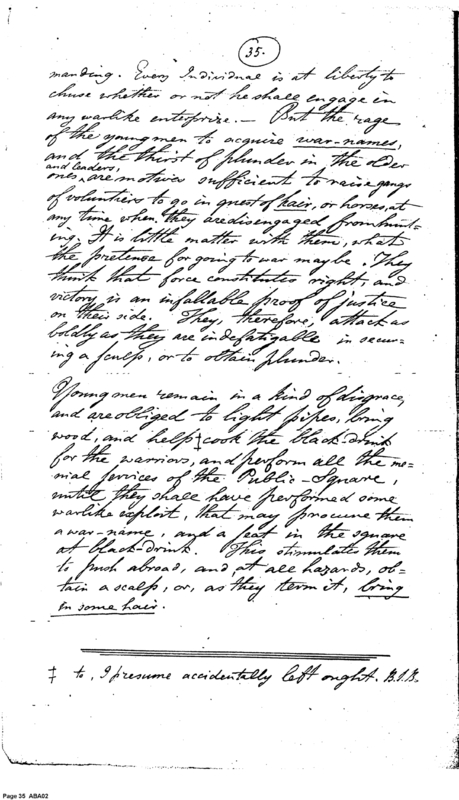 35.
manding. Every Individual is at liberty to
chuse whether or not he shall engage in
any warlike enterprize. — But the rage
of the young men to acquire war-names,
and the thirst of plunder in the older
and leaders,
ones ‸ are motives sufficient to raise gangs
of volunteers to go in quest of hair, or horses, at
any time when they are disengaged from hunt=
ing. It is little matter with them, what
the pretense for going to war may be. They
think that force constitutes right, and
victory is an infallable proof of justice
on their side. They, therefore, attack as
boldly as they are indefatigable in secur=
ing a sculp, or to obtain plunder.
Young men remain in a kind of disgrace,
and are obliged to light pipes, bring
wood, and help ‡ cook the black-drink
for the warriors, and perform all the me=
nial services of the Public-Square,
until they shall have performed some
warlike exploit, that may procure them
a war-name, and a seat in the square
at black-drink. This stimulates them
to push abroad, and at all hazards, ob=
tain a scalp, or, as they term it, bring
in some hair.
‡ to, I presume accidentally left ought.
Page 35 ABA02